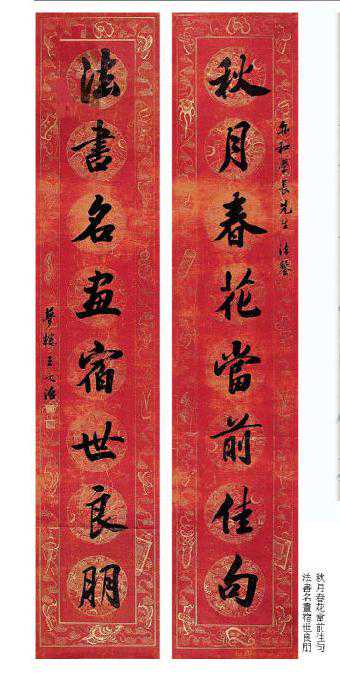 秋月春花當前佳句
法書名畫宿世良朋
夢樓王文治
秋月春花當前佳句
法書名畫宿世良朋